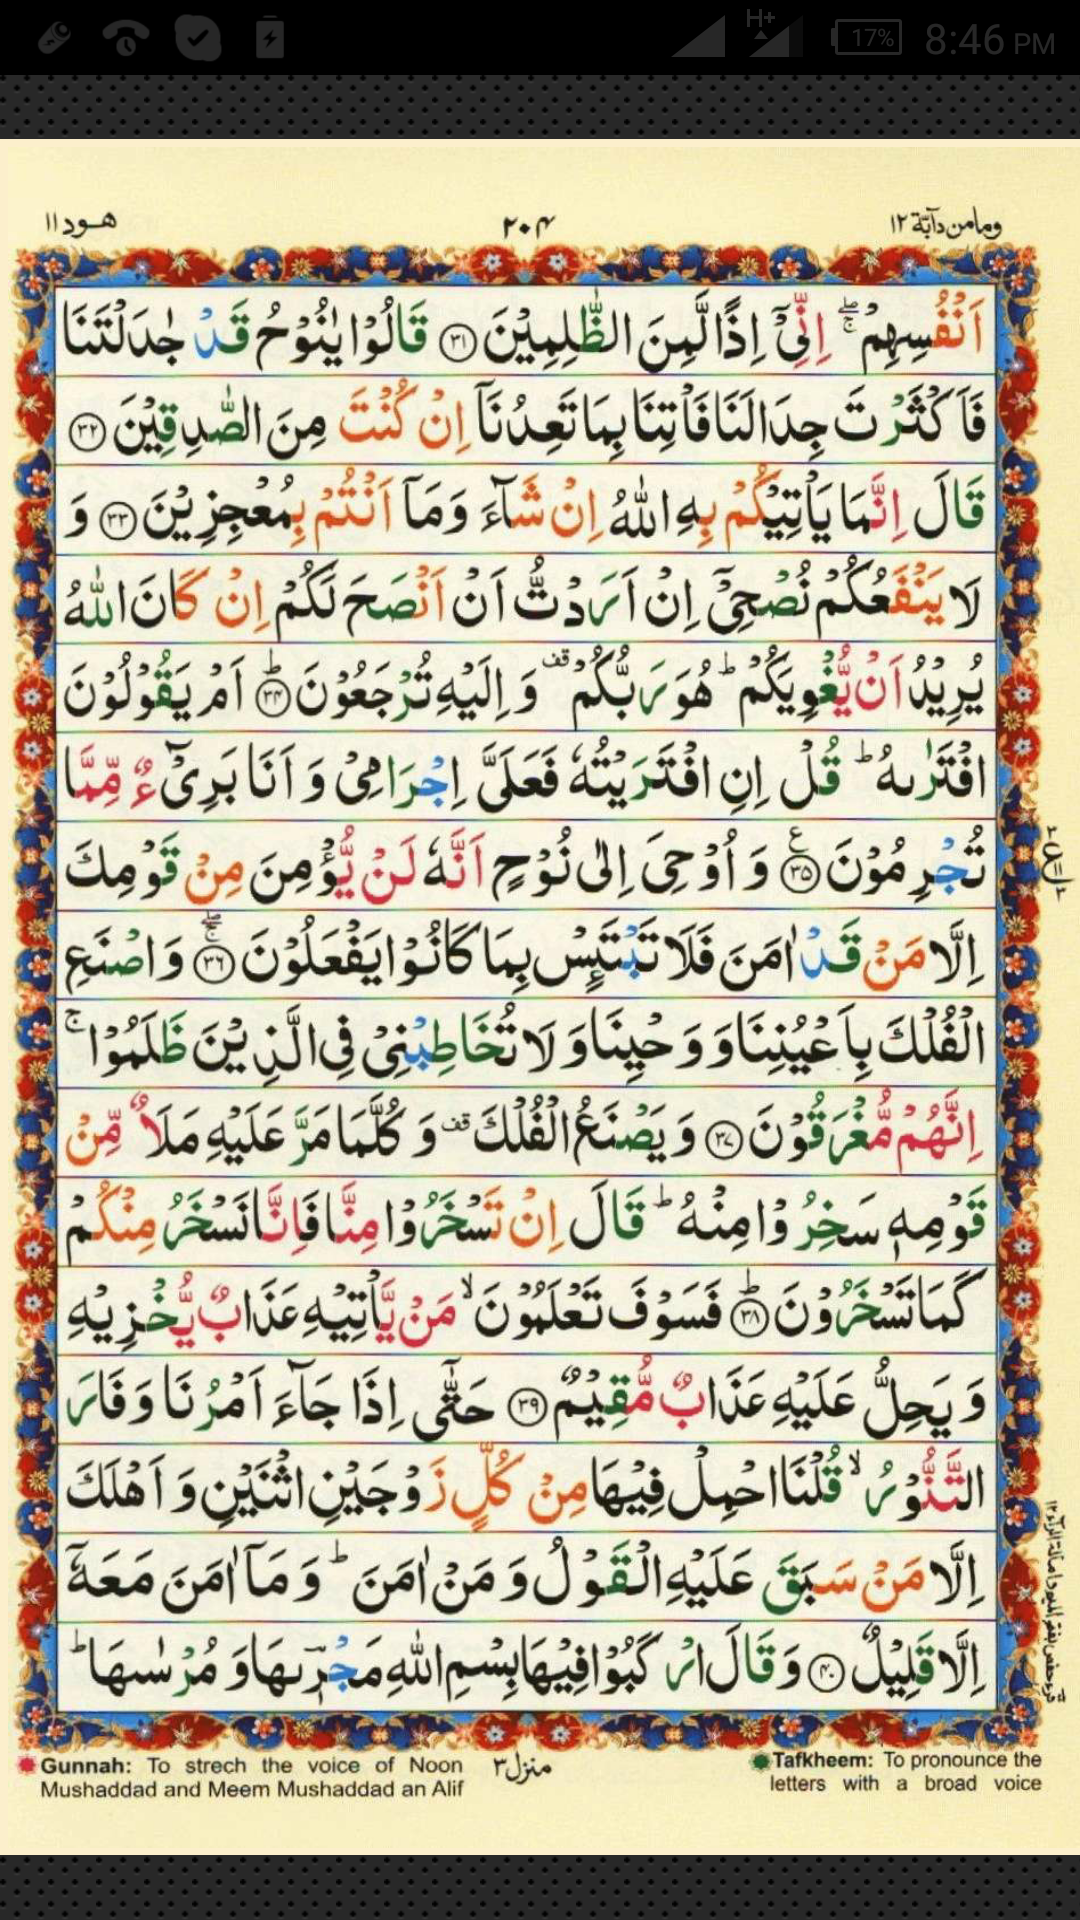 H+
17%
8:46 PM
ومامن دآبّة ١٢
٢٠٤
هـود ١١
اَنْفُسِهِمْ ۚۖ اِنِّیْۤ اِذًا لَّمِنَ الظّٰلِمِیْنَ ﴿۳۱﴾ قَالُوْا یٰنُوْحُ قَدْ جٰدَلْتَنَا
فَاَكْثَرْتَ جِدَالَنَا فَاْتِنَا بِمَا تَعِدُنَاۤ اِنْ كُنْتَ مِنَ الصّٰدِقِیْنَ ﴿۳۲﴾
قَالَ اِنَّمَا یَاْتِیْكُمْ بِهِ اللّٰهُ اِنْ شَآءَ وَمَاۤ اَنْتُمْ بِمُعْجِزِیْنَ ﴿۳۳﴾ وَ
لَا یَنْفَعُكُمْ نُصْحِیْۤ اِنْ اَرَدْتُّ اَنْ اَنْصَحَ لَكُمْ اِنْ كَانَ اللّٰهُ
یُرِیْدُ اَنْ یُّغْوِیَكُمْ ؕ هُوَ رَبُّكُمْ قف وَ اِلَیْهِ تُرْجَعُوْنَ ﴿۳۴﴾ؕ اَمْ یَقُوْلُوْنَ
افْتَرٰىهُ ؕ قُلْ اِنِ افْتَرَیْتُهٗ فَعَلَیَّ اِجْرَامِیْ وَ اَنَا بَرِیْٓءٌ مِّمَّا
تُجْرِمُوْنَ ﴿۳۵﴾ع وَ اُوْحِیَ اِلٰی نُوْحٍ اَنَّهٗ لَنْ یُّؤْمِنَ مِنْ قَوْمِكَ
اِلَّا مَنْ قَدْ اٰمَنَ فَلَا تَبْتَىِٕسْ بِمَا كَانُوْا یَفْعَلُوْنَ ﴿۳۶﴾ۚۖ وَ اصْنَعِ
الْفُلْكَ بِاَعْیُنِنَا وَ وَحْیِنَا وَ لَا تُخَاطِبْنِیْ فِی الَّذِیْنَ ظَلَمُوْا ۚ
اِنَّهُمْ مُّغْرَقُوْنَ ﴿۳۷﴾ وَ یَصْنَعُ الْفُلْكَ قف وَ كُلَّمَا مَرَّ عَلَیْهِ مَلَاٌ مِّنْ
قَوْمِهٖ سَخِرُوْا مِنْهُ ؕ قَالَ اِنْ تَسْخَرُوْا مِنَّا فَاِنَّا نَسْخَرُ مِنْكُمْ
كَمَا تَسْخَرُوْنَ ﴿۳۸﴾ؕ فَسَوْفَ تَعْلَمُوْنَ ۙ مَنْ یَّاْتِیْهِ عَذَابٌ یُّخْزِیْهِ
وَ یَحِلُّ عَلَیْهِ عَذَابٌ مُّقِیْمٌ ﴿۳۹﴾ حَتّٰۤی اِذَا جَآءَ اَمْرُنَا وَ فَارَ
التَّنُّوْرُ ۙ قُلْنَا احْمِلْ فِیْهَا مِنْ كُلٍّ زَوْجَیْنِ اثْنَیْنِ وَ اَهْلَكَ
اِلَّا مَنْ سَبَقَ عَلَیْهِ الْقَوْلُ وَ مَنْ اٰمَنَ ؕ وَ مَاۤ اٰمَنَ مَعَهٗۤ
اِلَّا قَلِیْلٌ ﴿۴۰﴾ وَ قَالَ ارْكَبُوْا فِیْهَا بِسْمِ اللّٰهِ مَجْرٖىهَا وَ مُرْسٰىهَا ؕ
Gunnah: To strech the voice of Noon
Mushaddad and Meem Mushaddad an Alif
منزل ٣
Tafkheem: To pronounce the
letters with a broad voice